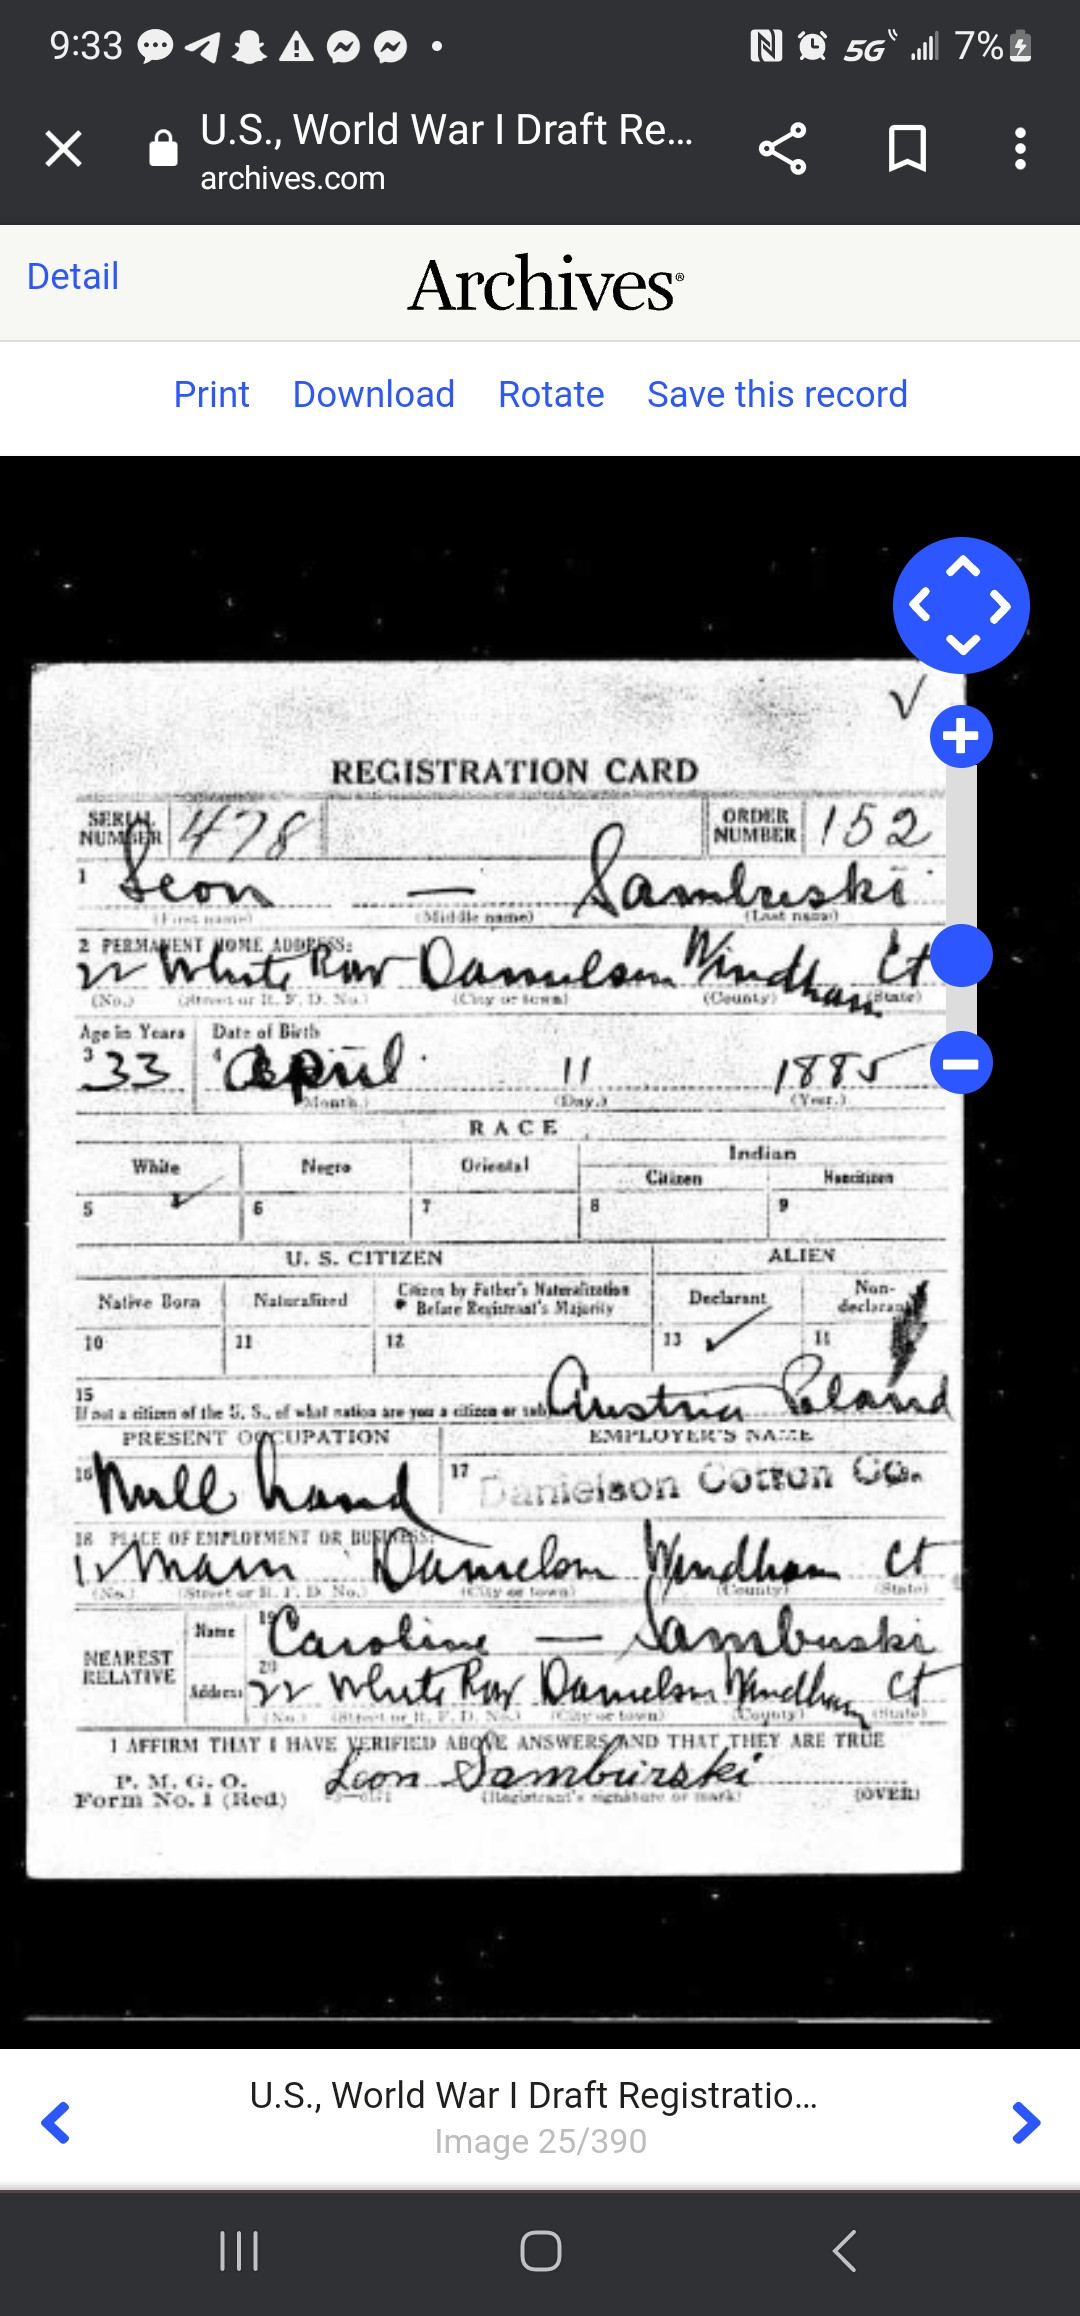 9:33
5G 7%
U.S., World War I Draft Re...
archives.com
Detail
Archives®
Print Download Rotate Save this record
REGISTRATION CARD
SERIAL NUMBER 478 ORDER NUMBER 152
1 Leon — Sambreski
(First name) (Middle name) (Last name)
2 PERMANENT HOME ADDRESS:
22 White Row Danielson Windham Ct
(No.) (Street or R. F. D. No.) (City or town) (County) (State)
Age in Years Date of Birth
3 33 4 April 11 1885
(Month.) (Day.) (Year.)
RACE
White Negro Oriental Indian
Citizen Noncitizen
5 6 7 8 9
U. S. CITIZEN ALIEN
Native Born Naturalized Citizen by Father's Naturalization Before Registrant's Majority Declarant Non-declarant
10 11 12 13 14
15
If not a citizen of the U. S., of what nation are you a citizen or subject? Austria Poland
PRESENT OCCUPATION EMPLOYER'S NAME
16 Mill hand 17 Danielson Cotton Co.
18 PLACE OF EMPLOYMENT OR BUSINESS:
Main Danielson Windham Ct
(No.) (Street or R. F. D. No.) (City or town) (County) (State)
NEAREST RELATIVE Name 19 Caroline — Sambuski
Address 20 22 White Row Danielson Windham Ct
(No.) (Street or R. F. D. No.) (City or town) (County) (State)
I AFFIRM THAT I HAVE VERIFIED ABOVE ANSWERS AND THAT THEY ARE TRUE
P. M. G. O.
Form No. 1 (Red) Leon Samburski
(Registrant's signature or mark) (OVER)
U.S., World War I Draft Registratio...
Image 25/390